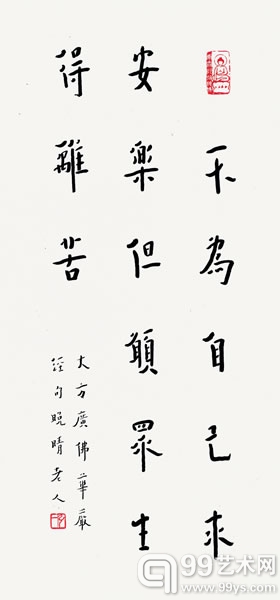 不為自己求
安樂但願眾生
得離苦
大方廣佛華嚴
經句晚晴老人
99艺术网
www.99ys.com